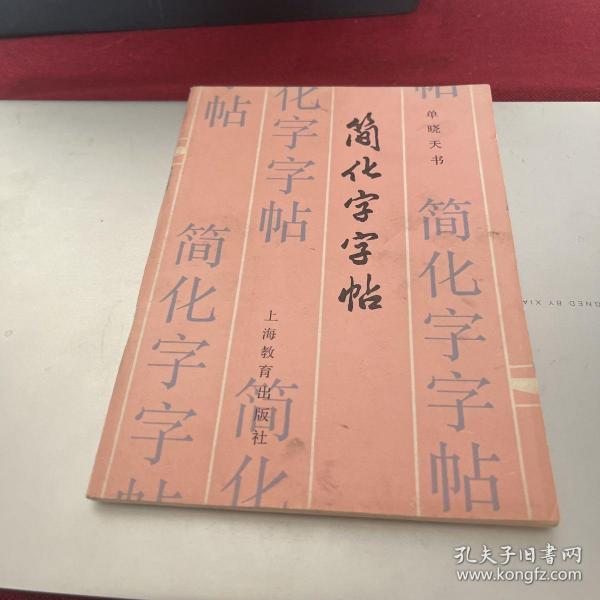 单晓天书
简化字字帖
上海教育出版社
帖
化字字帖
帖
简化字字帖
简化字字帖
简化
GNED BY XIA
孔夫子旧书网
www.kongfz.com